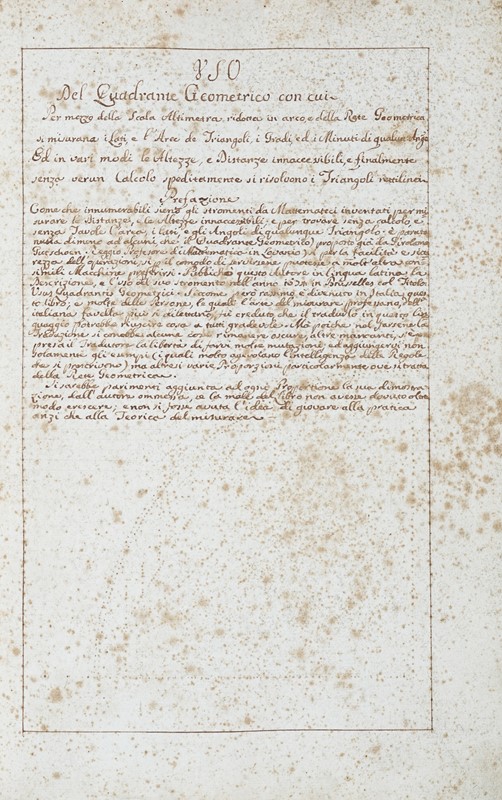 VSO
Del Quadrante Geometrico con cui
Per mezzo della Scala Altimetra, ridotta in arco, e della Rete Geometrica
si misurano i Lati e l'Aree de Triangoli, i Gradi, ed i Minuti di qualun. Ango
Ed in vari modi le Altezze, e Distanze innaccessibili, e finalmente
senza verun Calcolo speditamente si risolvono i Triangoli rettilinei
Prefazione
Come che innumerabili sieno gli stromenti da Mattematici inventati per mi
surare le Distanze, e le Altezze innaccessibili, e per trovare senza calcolo, e
senza Tavole l'area, i lati, e gli Angoli di qualunque Triangolo, è paruto
nulla dimeno ad alcuni che il Quadrante Geometrico proposto già da
Professore di Mattematica in Lovanio per la facilità, e sicu
rezza dell'operazioni, si p. il comodo di servirsene potesse a molt'altre con
simili Macchine preferirsi. Pubblicò questo Autore in lingua latina la
Descrizione, e l'uso del suo stromento nell'anno in Brusselles col Titolo
Usus Quadrantis Geometrici. Siccome però raro è divenuto in Italia ques
to libro, e molte Persone, le quali l'arte del misurare professando, dell'
italiana favella più si dilettano, si è creduto, che il tradurlo in questo lin
guaggio potrebbe riuscire cosa a tutti gradevole. Mà poiche nel farsene la
Traduzione si conobbe alcune cose rimanere oscure, altre mancanti, s'è
presa il Tradutore la libertà di farvi molte mutazioni, ed aggiungervi non
solamente gli esempi (i quali molto agevolano l'intelligenza delle Regole
che si prescrivono) ma altresi varie Proporzioni particolarmente ove si tratta
della Rete Geometrica.
Si sarebbe parimenti aggiunta ad ogni Proportione la sua dimostra
zione, dall'autore ommessa, se la mole del libro non avesse dovuto oltre
modo crescere, e non si fosse avuta l'idea di giovare alla pratica
anzi che alla Teorica del misurare